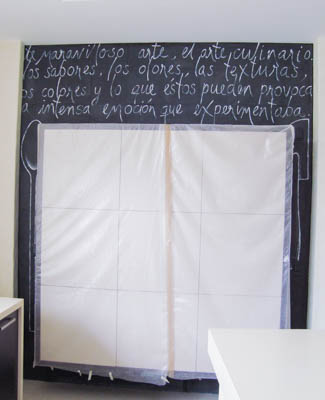 maravilloso arte, el arte culinario.
os sabores, los olores, las texturas,
os colores y lo que éstos pueden provocar
a intensa emoción que experimentaba.